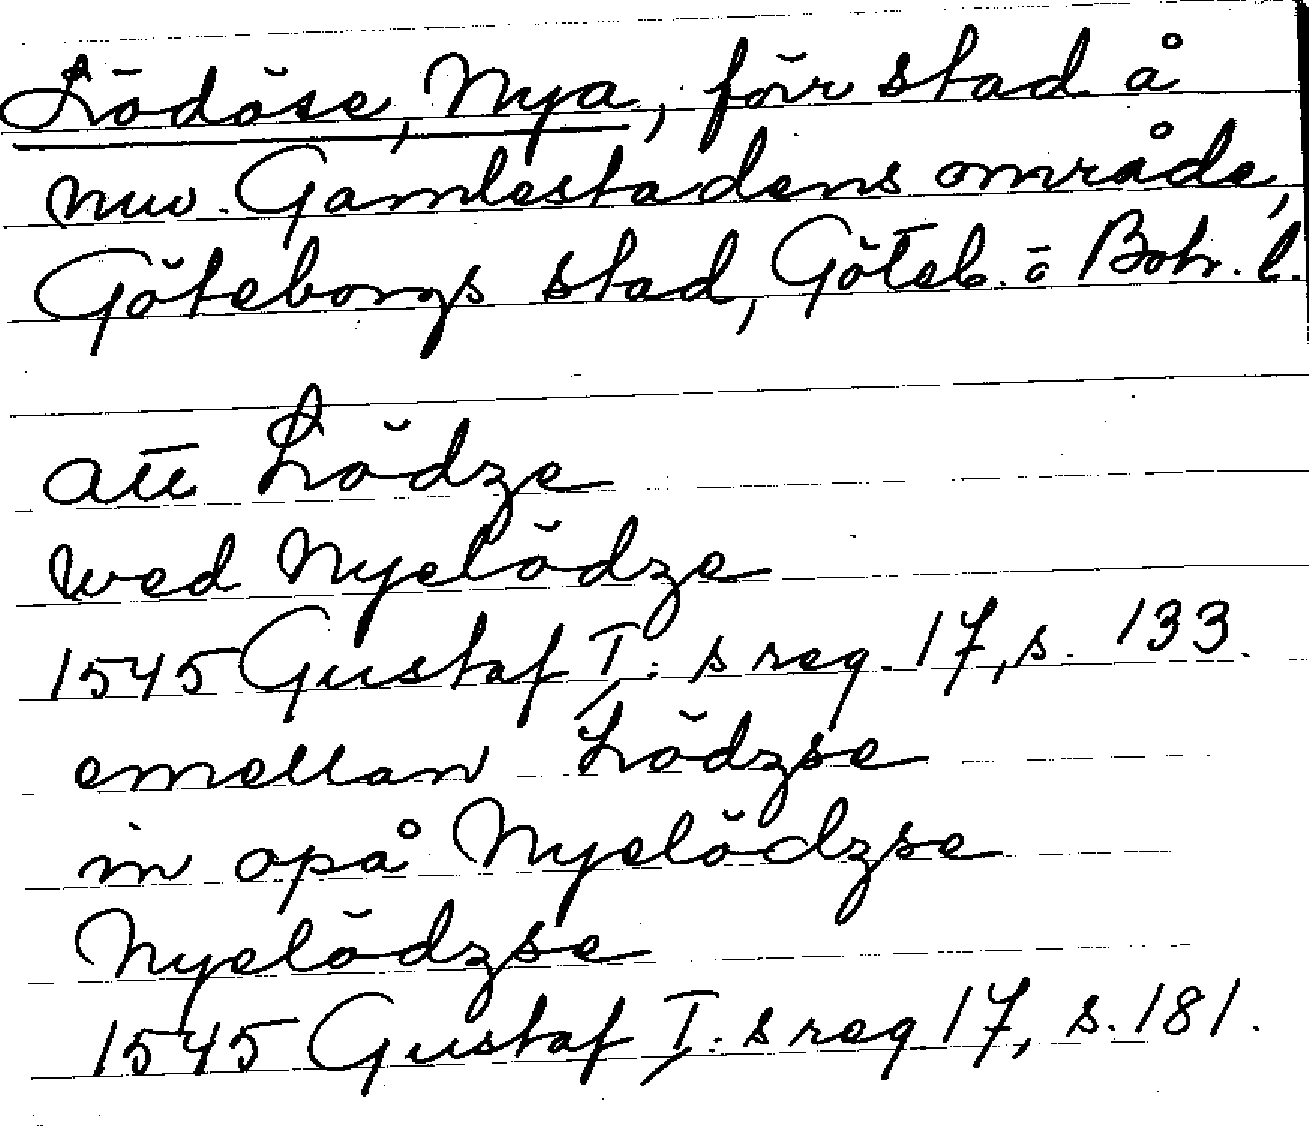 Lödöse, Nya, förr stad å
nuv. Gamlestadens område,
Göteborgs stad, Göteb. o Boh. l.
att Lödze
wed Nyelödze
1545 Gustaf I:s reg. 17, s. 133.
emellan Lödzse
in opå Nyelödzse
Nyelödzse
1545 Gustaf I:s reg 17, s. 181.